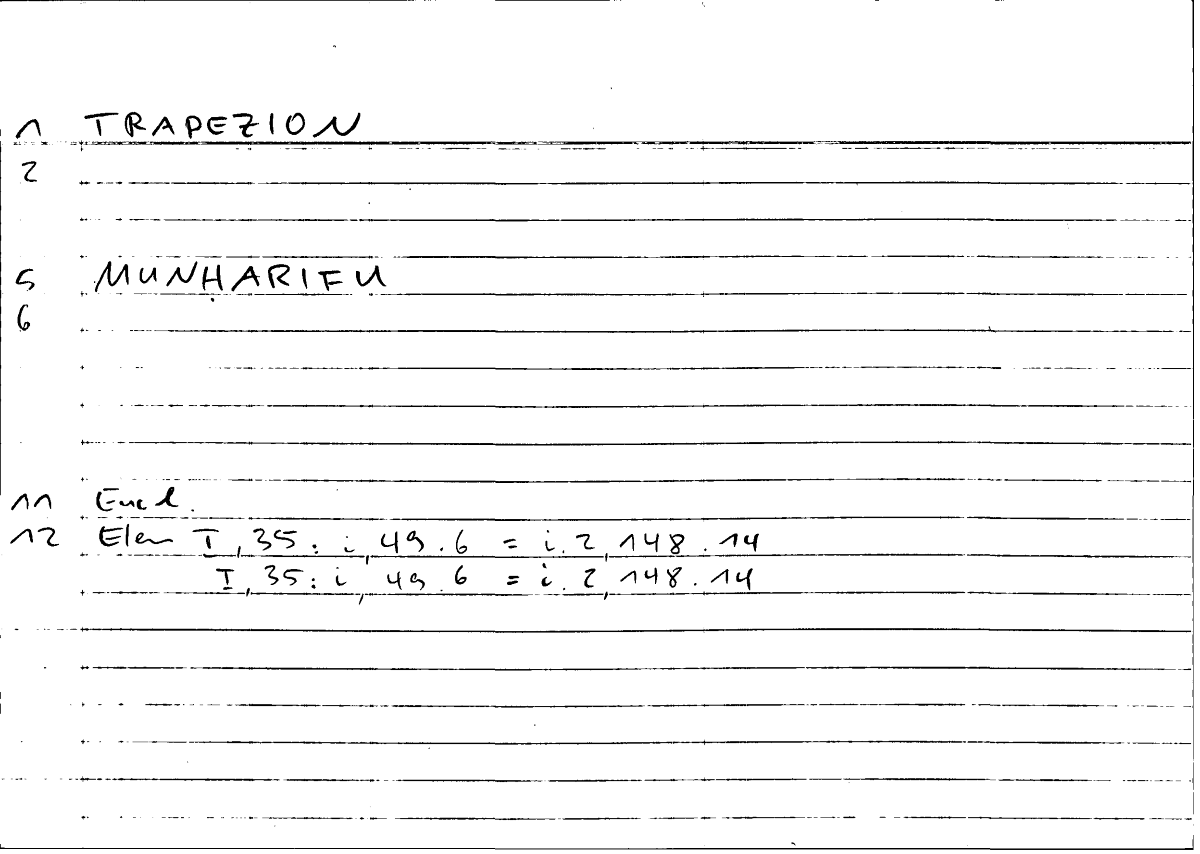 1 TRAPEZION
2
5 MUNHARIFU
6
11 Eucl.
12 Elem I, 35: i, 49.6 = i.2, 148.14
I, 35: i, 49.6 = i.2, 148.14